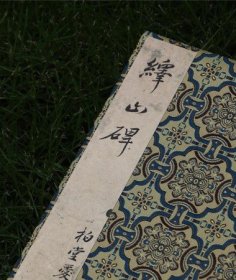 繹山碑
柏堂